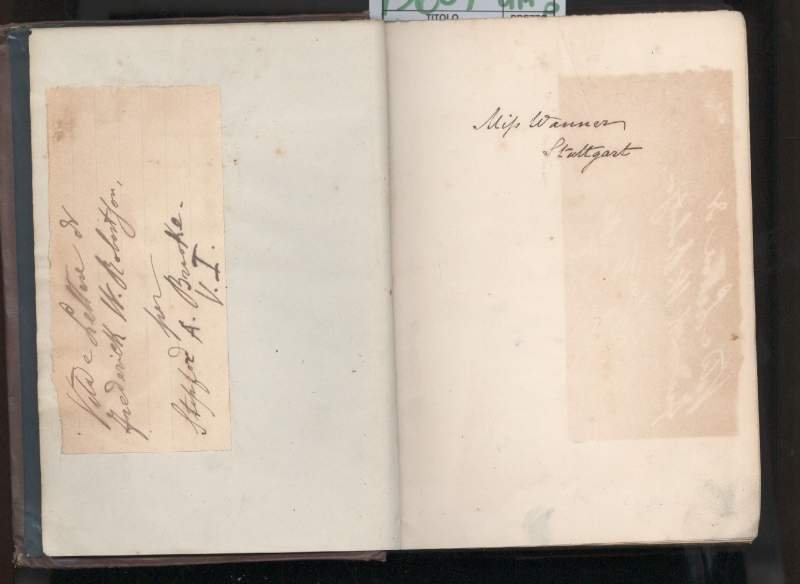 TITOLO
Vita e Lettere di
Frederick W. Robertson,
per
Stopford A. Brooke.
V. I.
Miss Wanner
Stuttgart